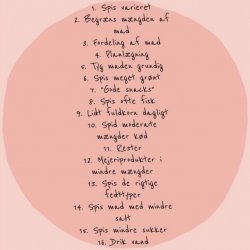 1. Spis varieret
2. Begræns mængden af
mad
3. Fordeling af mad
4. Planlægning
5. Tyg maden grundig
6. Spis meget grønt
7. "Gode snacks"
8. Spis ofte fisk
9. Lidt fuldkorn dagligt
10. Spid moderate
mængder kød
11. Rester
12. Mejeriprodukter i
mindre mængder
13. Spis de rigtige
fedttyper
14. Spis mad med mindre
salt
15. Spis mindre sukker
16. Drik vand